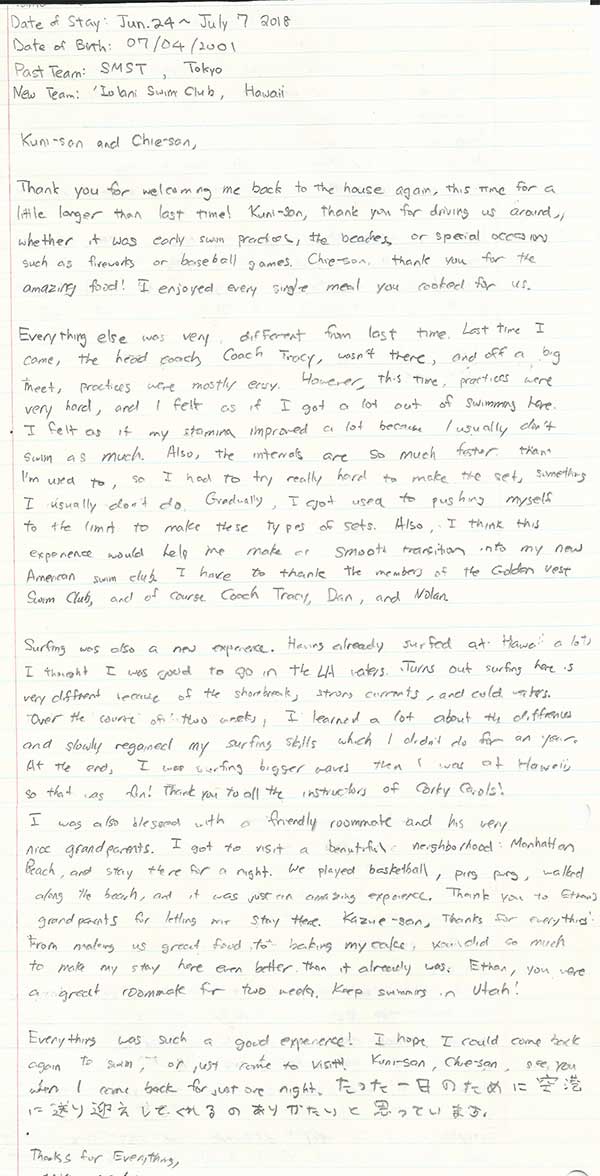 Date of Stay: Jun. 24 ~ July 7 2018
Date of Birth: 07/04/2001
Past Team: SMST, Tokyo
New Team: 'Iolani Swim Club, Hawaii
Kuni-san and Chie-san,
Thank you for welcoming me back to the house again, this time for a
little longer than last time! Kuni-san, thank you for driving us around,
whether it was early swim practices, the beaches, or special occasions
such as fireworks or baseball games. Chie-san, thank you for the
amazing food! I enjoyed every single meal you cooked for us.
Everything else was very different from last time. Last time I
came, the head coach, Coach Tracy, wasn't there, and off a big
meet, practices were mostly easy. However, this time, practices were
very hard, and I felt as if I got a lot out of swimming here.
I felt as if my stamina improved a lot because I usually don't
swim as much. Also, the intervals are so much faster than
I'm used to, so I had to try really hard to make the set, something
I usually don't do. Gradually, I got used to pushing myself
to the limit to make these types of sets. Also, I think this
experience would help me make a smooth transition into my new
American swim club. I have to thank the members of the Golden West
Swim Club, and of course Coach Tracy, Dan, and Nolan.
Surfing was also a new experience. Having already surfed at Hawaii a lot,
I thought I was good to go in the LA waters. Turns out surfing here is
very different because of the shorebreak, strong currents, and cold waters.
Over the course of two weeks, I learned a lot about the differences
and slowly regained my surfing skills which I didn't do for an year.
At the end, I was surfing bigger waves then I was at Hawaii,
so that was fun! Thank you to all the instructors of Corky Carols!
I was also blessed with a friendly roommate and his very
nice grandparents. I got to visit a beautiful neighborhood: Manhattan
Beach, and stay there for a night. We played basketball, ping pong, walked
along the beach, and it was just an amazing experience. Thank you to Ethan's
grandparents for letting me stay there. Kazue-san, Thanks for everything!
From making us great food to baking my cake, you did so much
to make my stay here even better than it already was. Ethan, you were
a great roommate for two weeks. Keep swimming in Utah!
Everything was such a good experience! I hope I could come back
again to swim, or just come to visit! Kuni-san, Chie-san, see you
when I come back for just one night. たった一日のために空港
に送り迎えしてくれるのありがたいと思っています。
Thanks for Everything,